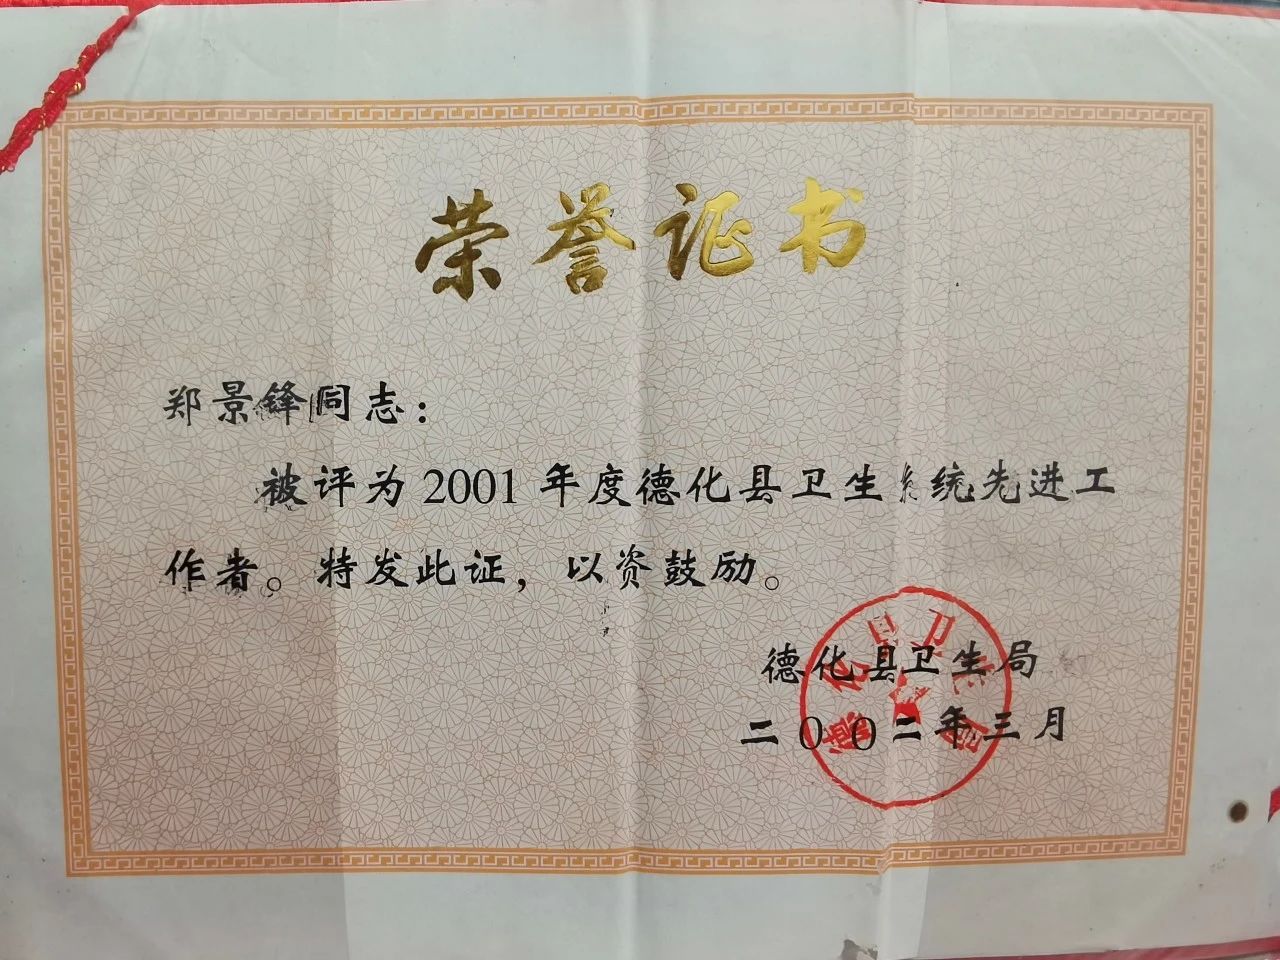 荣誉证书
郑景锋同志：
被评为2001年度德化县卫生系统先进工
作者。特发此证，以资鼓励。
德化县卫生局
二00二年三月
德化县卫生局